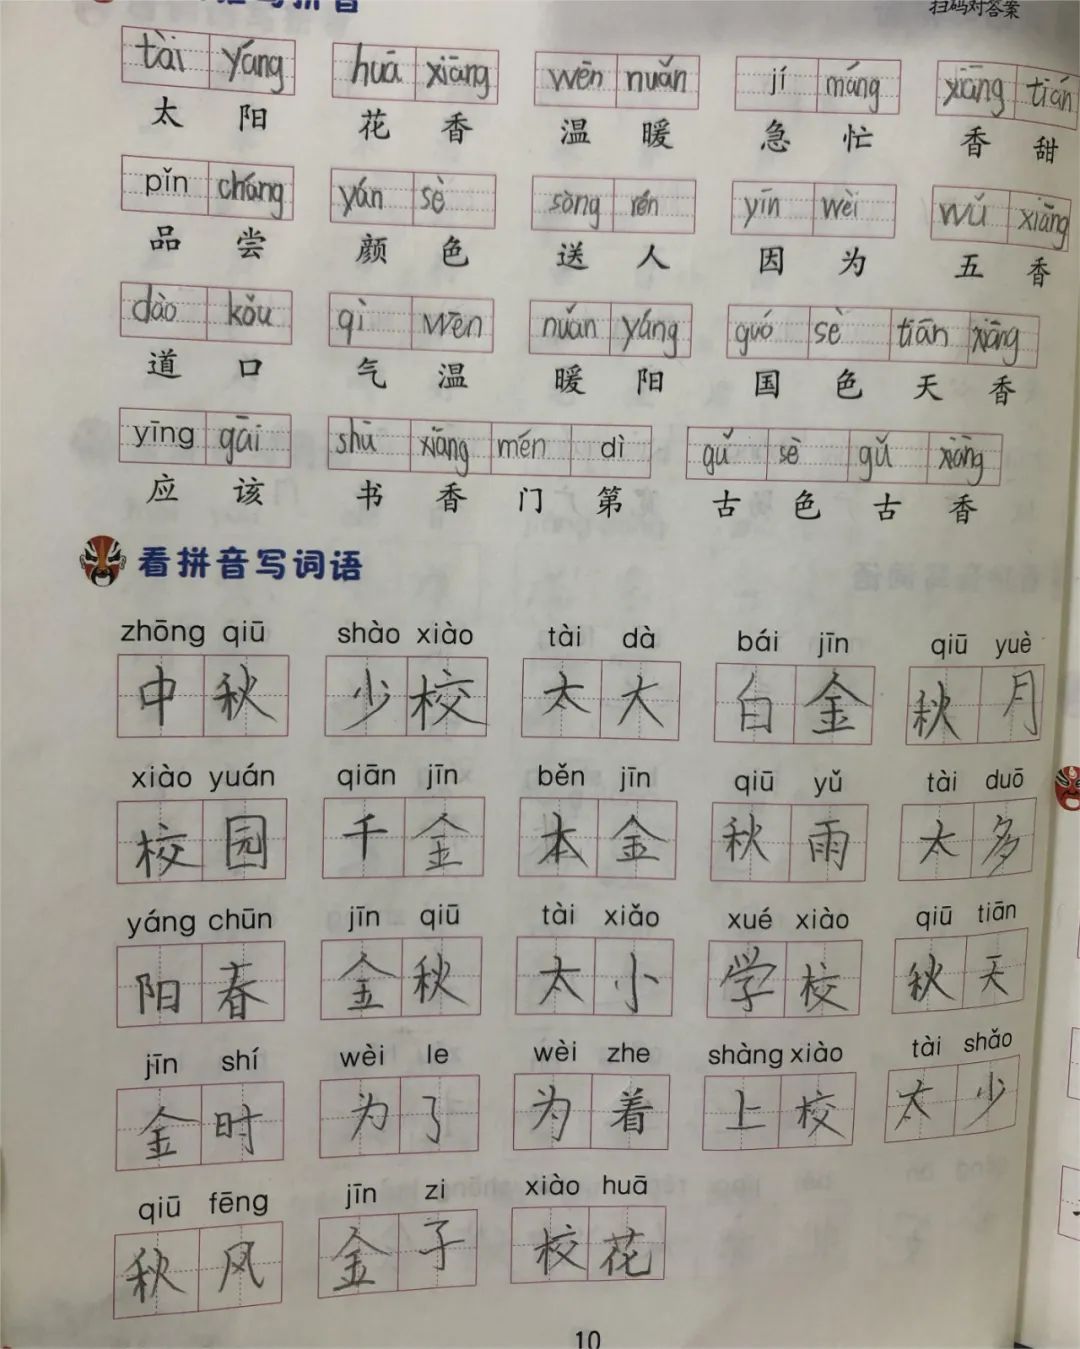 扫码对答案
写拼音
tài yáng huā xiāng wēn nuǎn jí máng xiāng tián
太 阳 花 香 温 暖 急 忙 香 甜
pǐn cháng yán sè sòng rén yīn wèi wǔ xiāng
品 尝 颜 色 送 人 因 为 五 香
dào kǒu qì wēn nuǎn yáng guó sè tiān xiāng
道 口 气 温 暖 阳 国 色 天 香
yīng gāi shū xiāng mén dì gǔ sè gǔ xiāng
应 该 书 香 门 第 古 色 古 香
看拼音写词语
zhōng qiū shào xiào tài dà bái jīn qiū yuè
中 秋 少 校 太 大 白 金 秋 月
xiào yuán qiān jīn běn jīn qiū yǔ tài duō
校 园 千 金 本 金 秋 雨 太 多
yáng chūn jīn qiū tài xiǎo xué xiào qiū tiān
阳 春 金 秋 太 小 学 校 秋 天
jīn shí wèi le wèi zhe shàng xiào tài shǎo
金 时 为 了 为 着 上 校 太 少
qiū fēng jīn zi xiào huā
秋 风 金 子 校 花
10